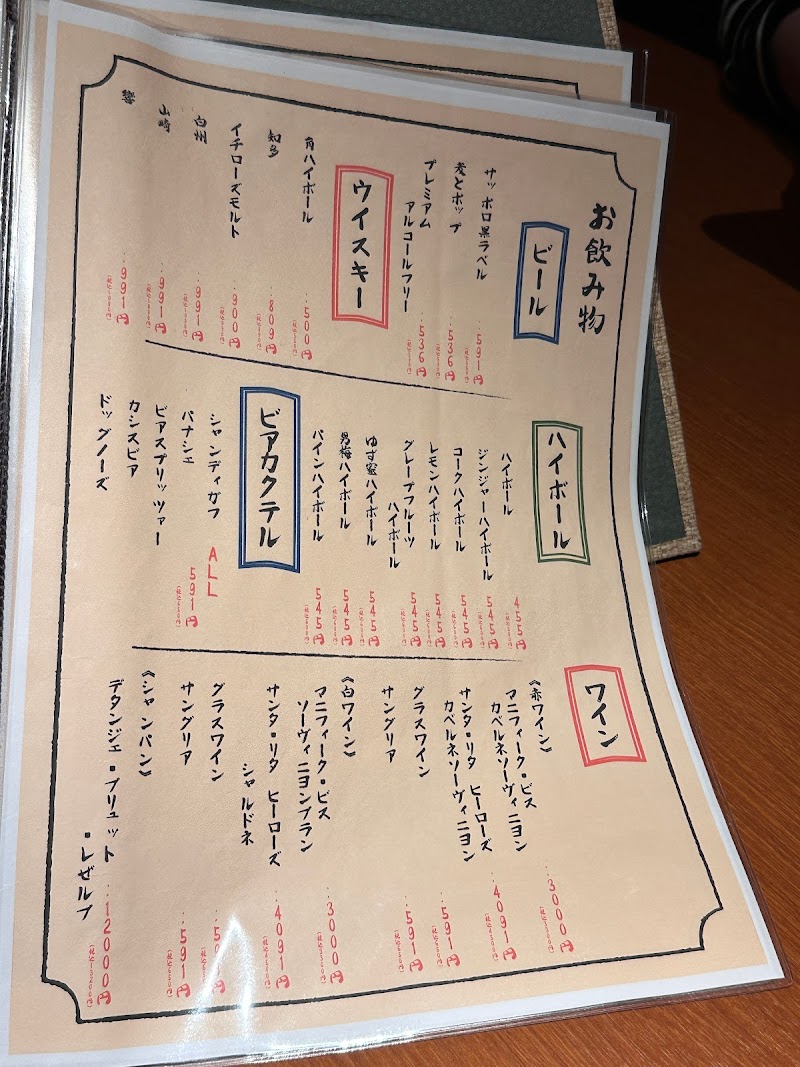 お飲み物
ビール
サッポロ黒ラベル ‥591円
麦とホップ ‥536円
プレミアム
アルコールフリー ‥536円
ウイスキー
角ハイボール ‥500円
知多 ‥809円
イチローズモルト ‥900円
白州 ‥991円
山崎 ‥991円
響 ‥991円
ハイボール
ハイボール 455円
ジンジャーハイボール 545円
コークハイボール 545円
レモンハイボール 545円
グレープフルーツ
ハイボール 545円
ゆず蜜ハイボール 545円
男梅ハイボール 545円
パインハイボール 545円
ビアカクテル
シャンディガフ
パナシェ
ビアスプリッツァー
カシスビア
ドッグノーズ
ALL
591円
ワイン
《赤ワイン》
マニフィーク・ビス
カベルネソーヴィニヨン ‥3000円
サンタ・リタ ヒーローズ
カベルネソーヴィニヨン ‥4091円
グラスワイン ‥591円
サングリア ‥591円
《白ワイン》
マニフィーク・ビス
ソーヴィニヨンブラン ‥3000円
サンタ・リタ ヒーローズ
シャルドネ ‥4091円
グラスワイン
サングリア ‥591円
《シャンパン》
デタンジェ・ブリュット
・レゼルブ ‥12000円